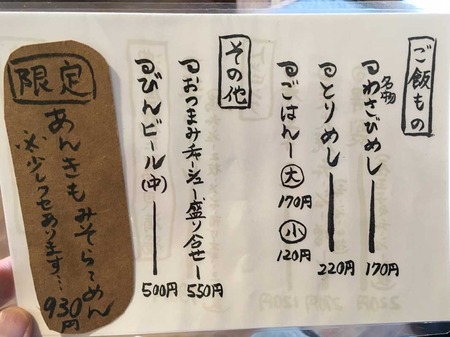 ご飯もの
名物
わさびめし 170円
とりめし 220円
ごはん 大 170円 小 120円
その他
おつまみチャーシュー盛り合せ 550円
びんビール(中) 500円
限定
あんきもみそらーめん
※少しクセあります… 930円